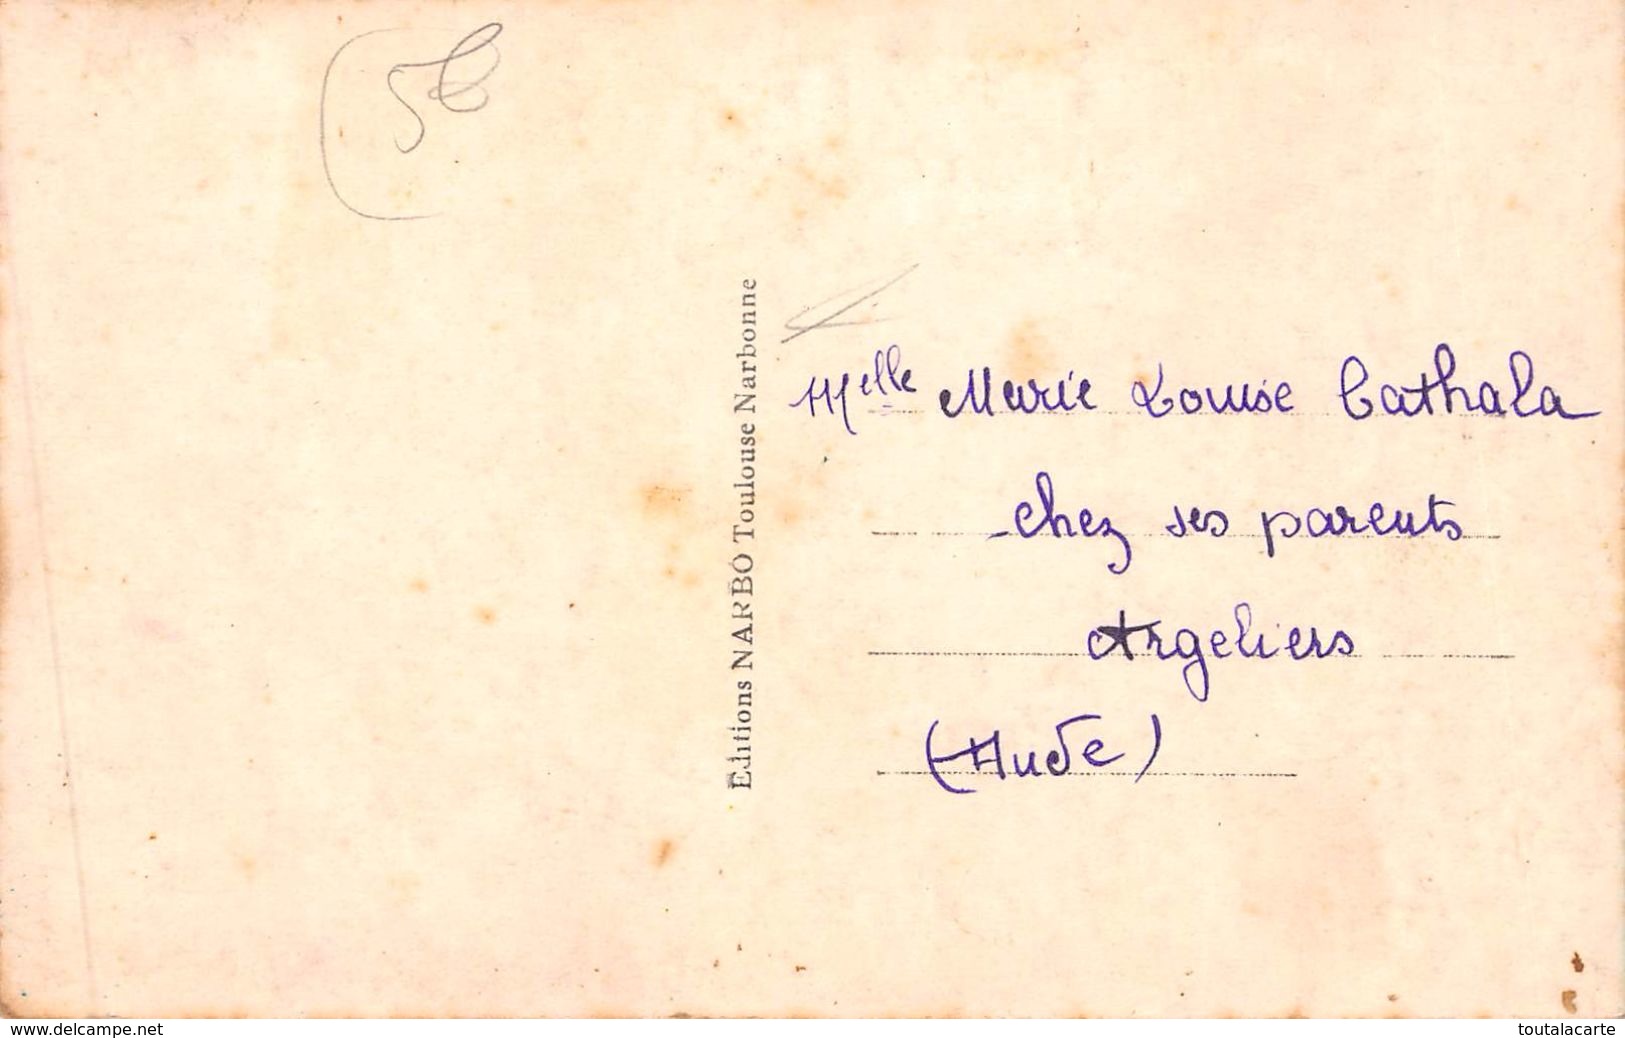 Editions NARBO Toulouse Narbonne
Melle Marie Louise Cathala
chez ses parents
Argeliers
(Aude)
www.delcampe.net
toutalacarte